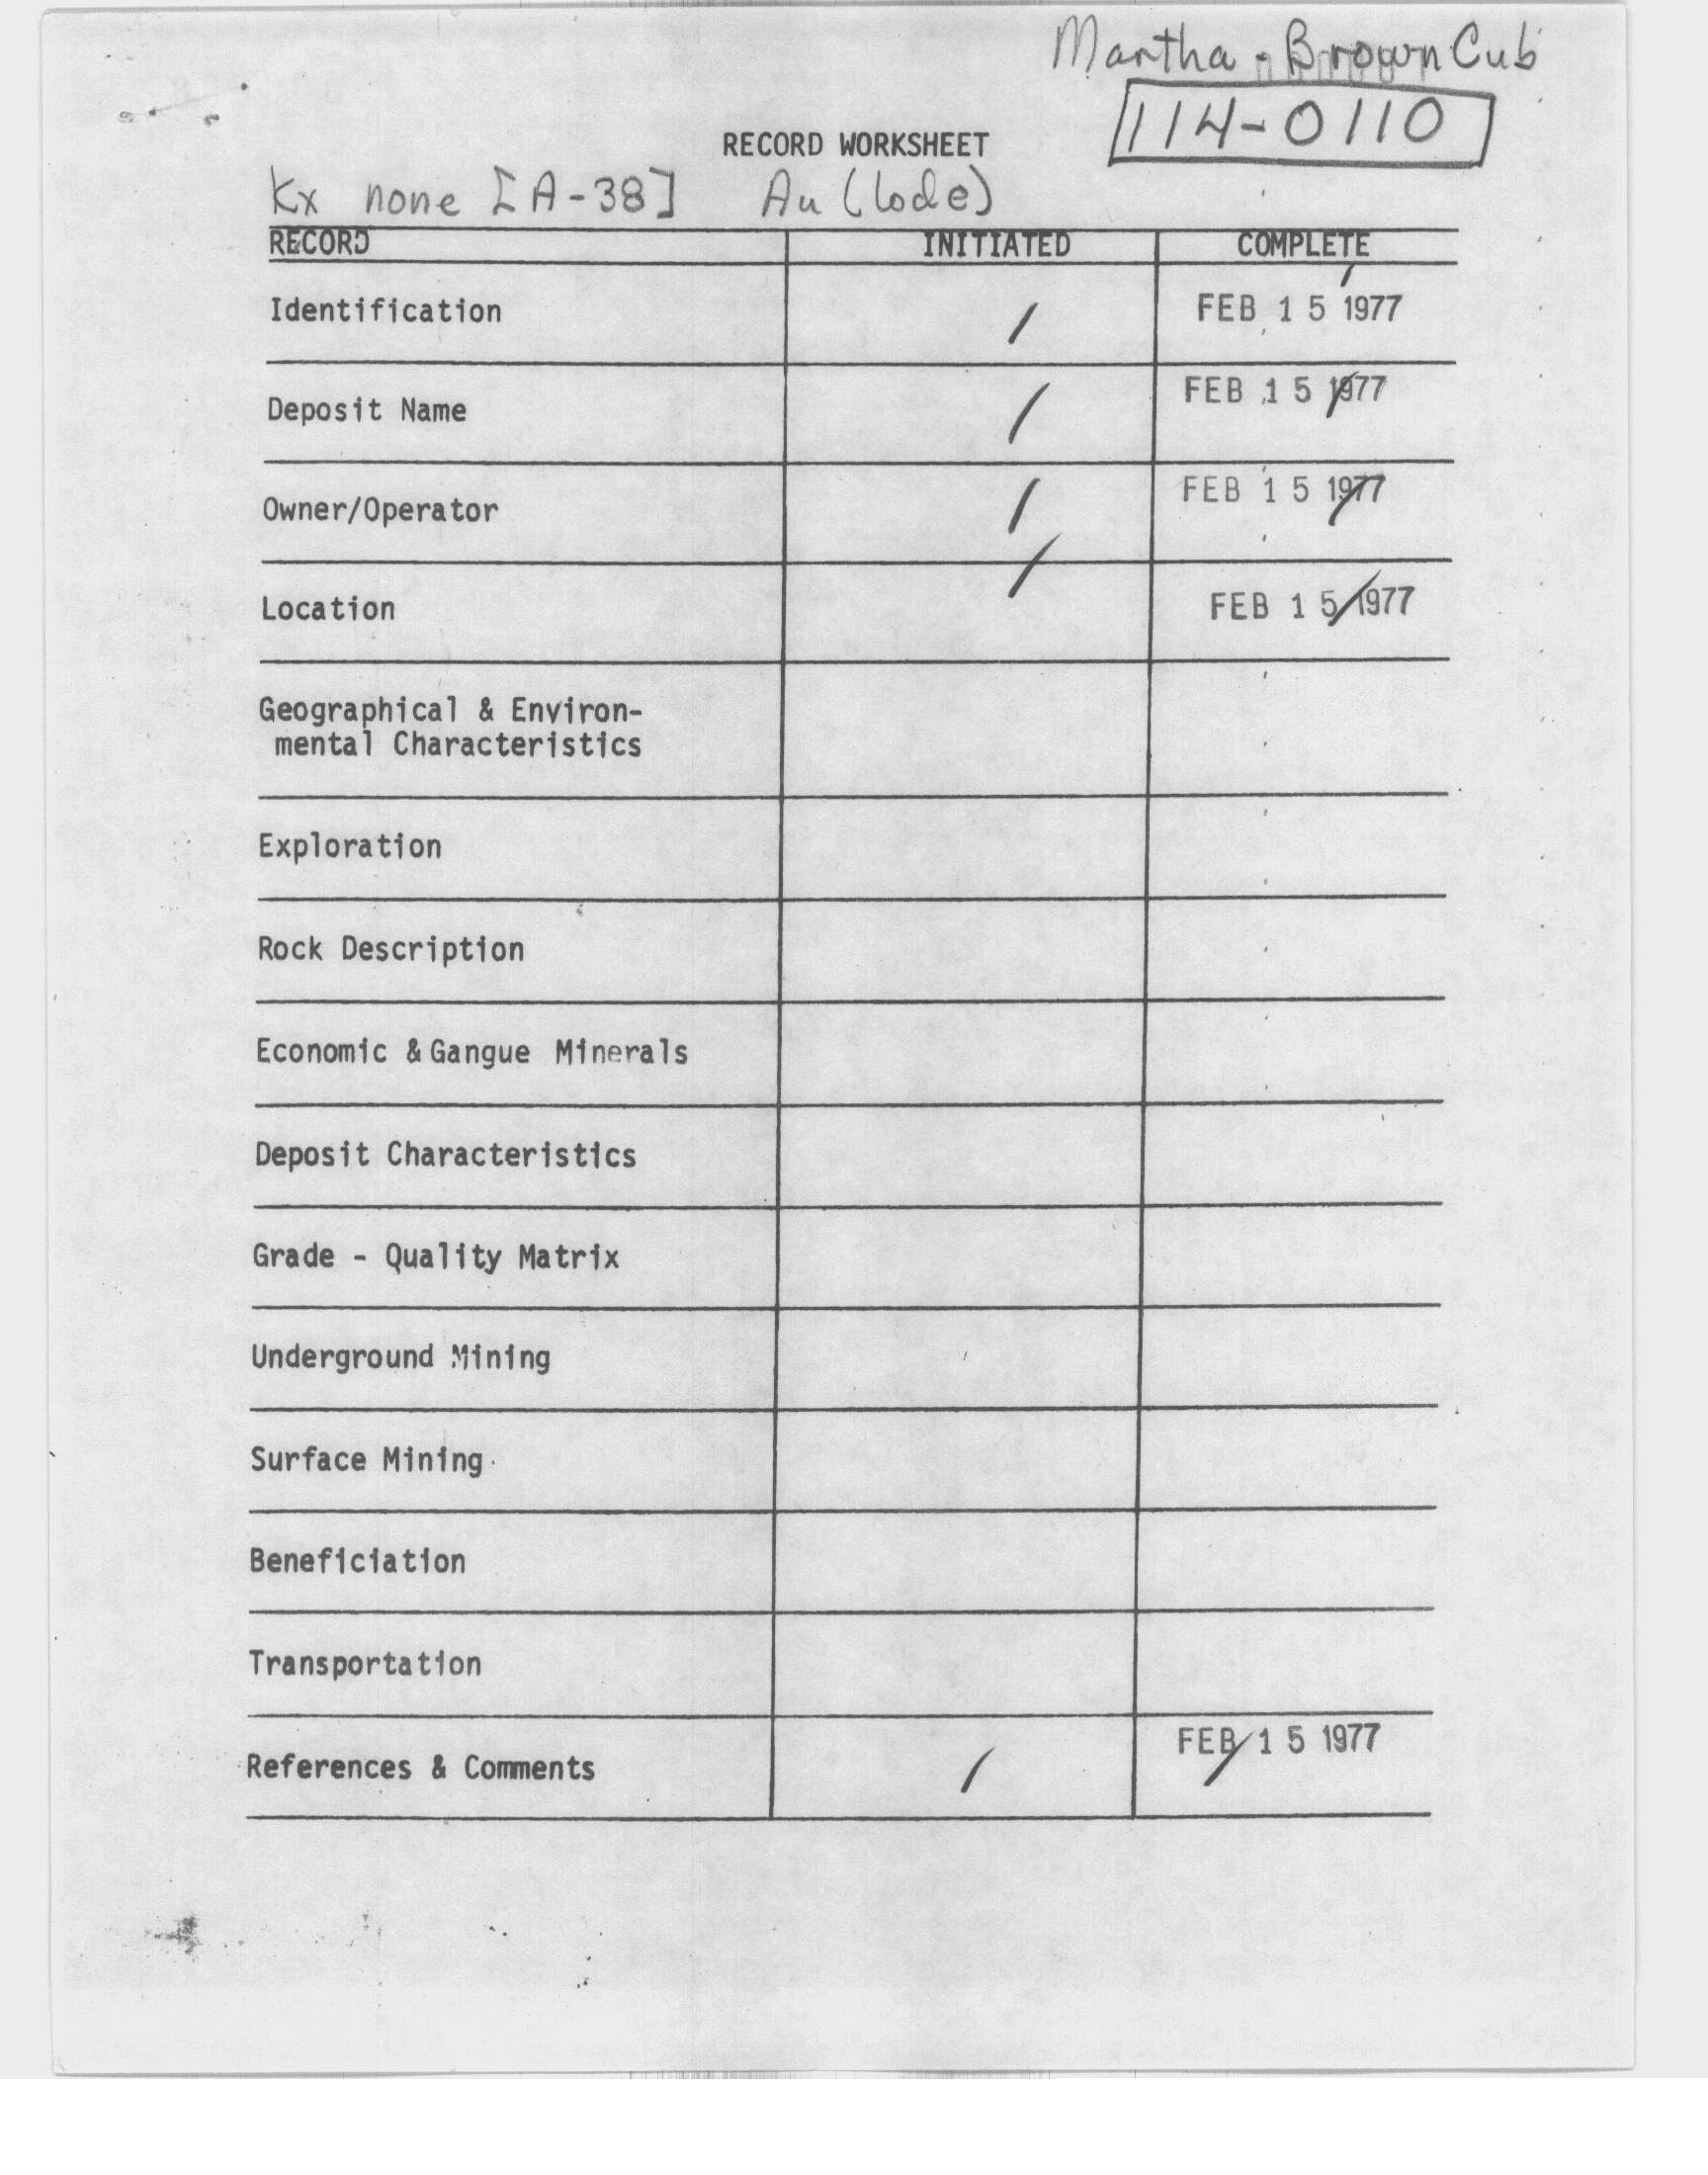 Martha - Brown Cub
114-0110
RECORD WORKSHEET
Kx none [A-38] Au (lode)
RECORD INITIATED COMPLETE
Identification / FEB 15 1977
Deposit Name / FEB 15 1977
Owner/Operator / FEB 15 1977
Location / FEB 15 1977
Geographical & Environ-
mental Characteristics
Exploration
Rock Description
Economic & Gangue Minerals
Deposit Characteristics
Grade - Quality Matrix
Underground Mining
Surface Mining
Beneficiation
Transportation
References & Comments / FEB 15 1977